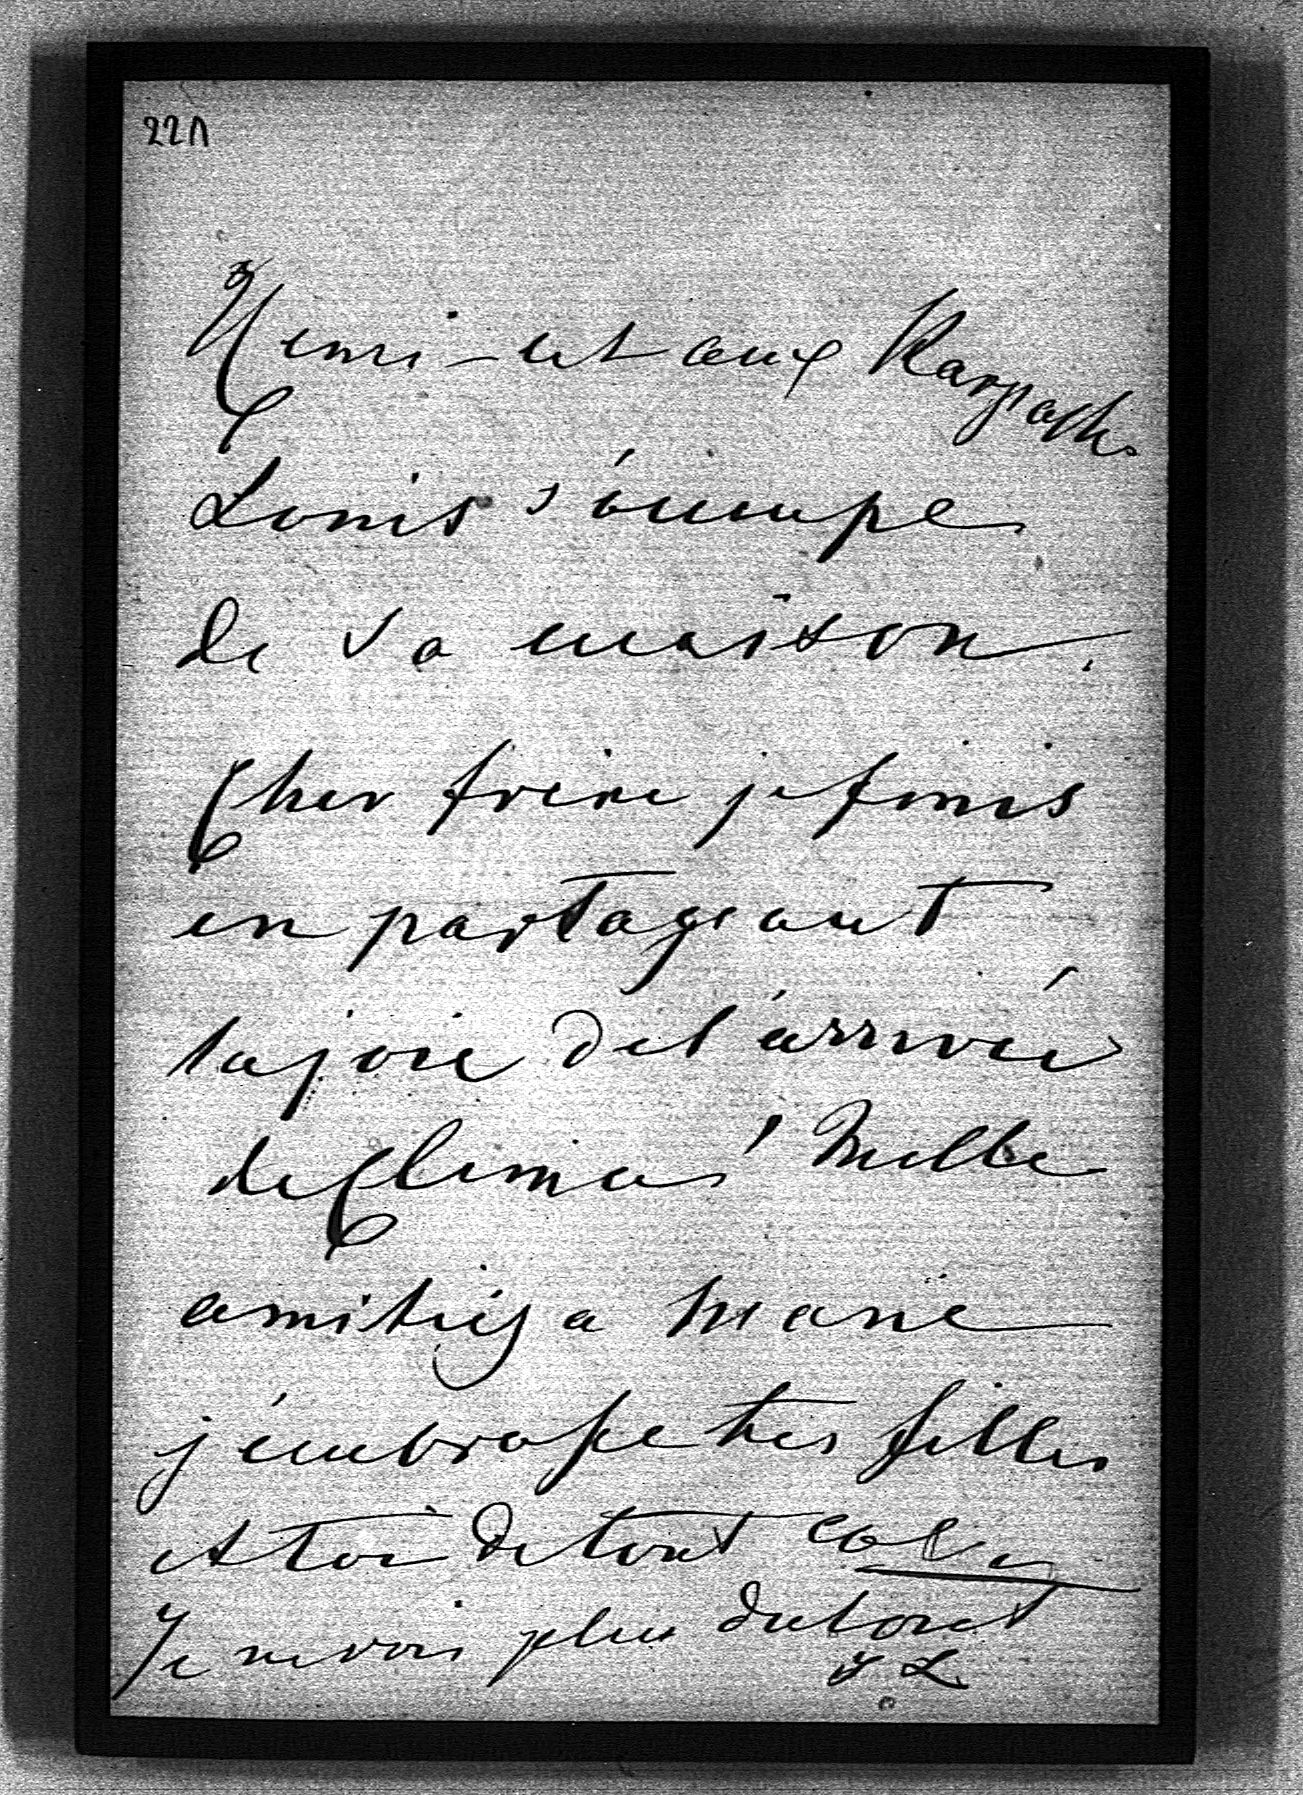 22
Henri est aux Karpathes
Louis s'occupe
de sa maison.
Cher frère je finis
en partageant
la joie de l'arrivée
de Clima! Mille
amitiés a Marie
j'embrasse tes filles
et toi de tout
Je ne vois plus du tout
L.